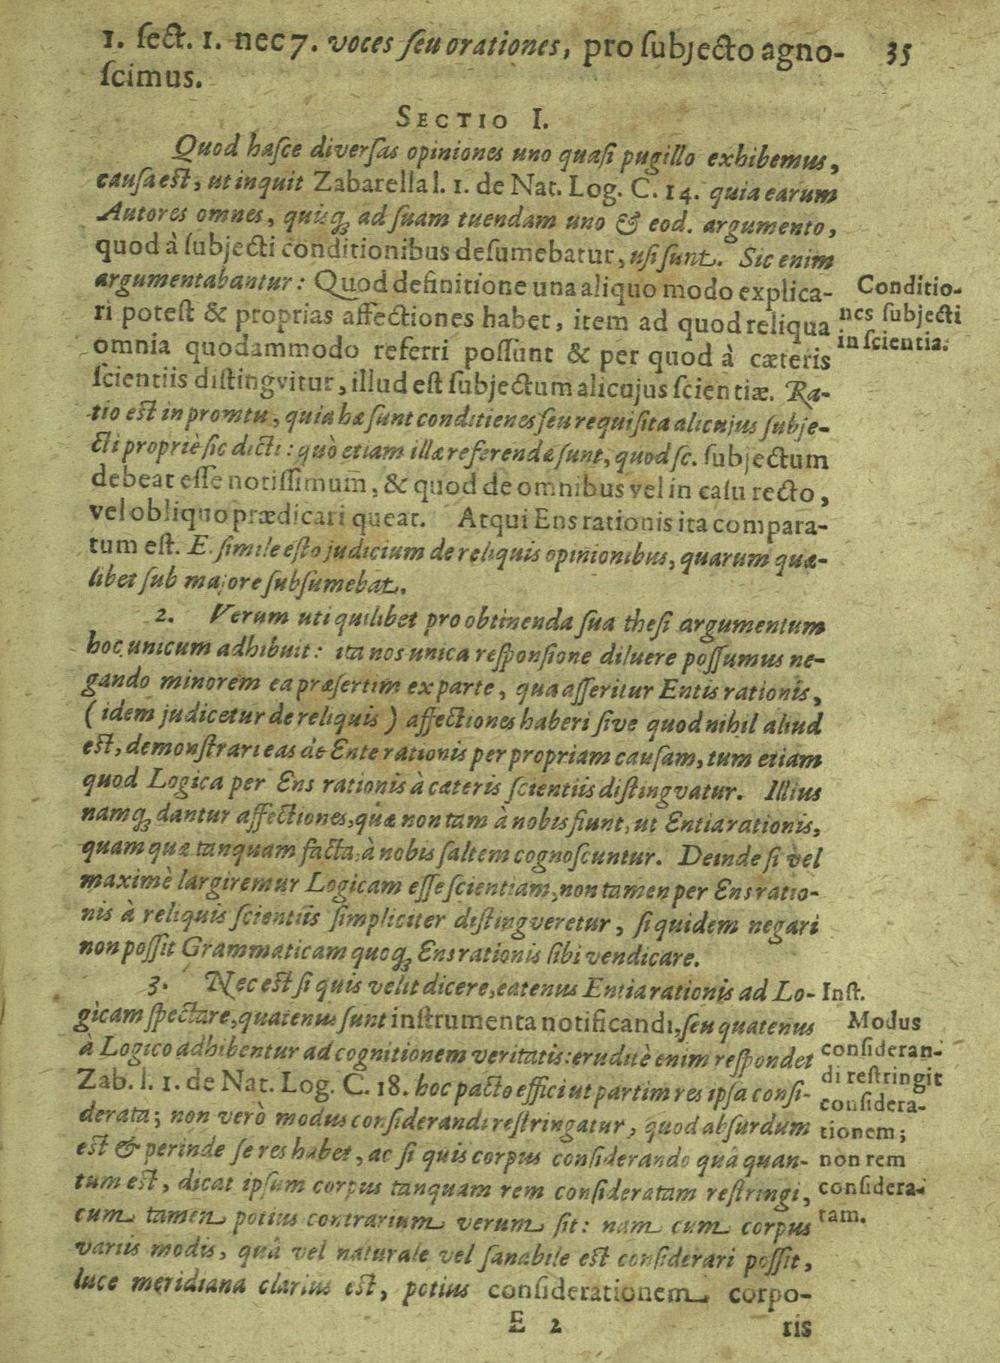 1. ſect. 1. nec 7. voces ſeu orationes, pro ſubjecto agno- 35
ſcimus.
SECTIO I.
Quod haſce diverſas opiniones uno quaſi pugillo exhibemus,
cauſa eſt, ut inquit Zabarella l. 1. de Nat. Log. C. 14. quia earum
Autores omnes, quisq; ad ſuam tuendam uno & eod. argumento,
quod à ſubjecti conditionibus deſumebatur, uſi ſunt. Sic enim
argumentabantur: Quod definitione una aliquo modo explica-
ri poteſt & proprias affectiones habet, item ad quod reliqua
omnia quodammodo referri poſſunt & per quod à cæteris
ſcientiis diſtingvitur, illud eſt ſubjectum alicujus ſcientiæ. Ra-
Conditio-
nes ſubjecti
in ſcientia.
tio eſt in promtu, quia hæ ſunt conditienes ſeu requiſita alicujus ſubje-
cti propriè ſic dicti: quò etiam illæ referendæ ſunt, quod ſc. ſubjectum
debeat eſſe notiſſimum̄, & quod de omnibus vel in caſu recto,
vel obliquo prædicari queat. Atqui Ens rationis ita compara-
tum eſt. E. ſimile eſto judicium de reliquis opinionibus, quarum quæ-
libet ſub majore ſubſumebat.
2. Verum uti quilibet pro obtinenda ſua theſi argumentum
hoc unicum adhibuit: ita nos unica reſponſione diluere poſſumus ne-
gando minorem ea præſertim ex parte, qua aſſeritur Entis rationis,
(idem judicetur de reliquis) affectiones haberi ſive quod nihil aliud
eſt, demonſtrari eas de Ente rationis per propriam cauſam, tum etiam
quod Logica per Ens rationis à cæteris ſcientiis diſtingvatur. Illius
namq; dantur affectiones, quæ non tam à nobis fiunt, ut Entia rationis,
quam quæ tanquam facta, à nobis ſaltem cognoſcuntur. Deinde ſi vel
maximè largiremur Logicam eſſe ſcientiam, non tamen per Ens ratio-
nis à reliquis ſcientiis ſimpliciter diſtingveretur, ſiquidem negari
non poſſit Grammaticam quoq; Ens rationis ſibi vendicare.
3. Nec eſt ſi quis velit dicere, eatenus Entia rationis ad Lo-
gicam ſpectare, quatenus ſunt inſtrumenta notificandi, ſeu quatenus
à Logico adhibentur ad cognitionem veritatis: eruditè enim reſpondet
Zab. l. 1. de Nat. Log. C. 18. hoc pacto effici ut partim res ipſa conſi-
derata; non verò modus conſiderandi reſtringatur, quod abſurdum
eſt & perinde ſe res habet, ac ſi quis corpus conſiderando quâ quan-
tum eſt, dicat ipſum corpus tanquam rem conſideratam reſtringi,
cum tamen potius contrarium verum ſit: nam cum corpus
variis modis, quâ vel naturale vel ſanabile eſt conſiderari poſſit,
luce meridiana clarius eſt, potius conſiderationem corpo-
Inſt.
Modus
conſideran-
di reſtringit
conſidera-
tionem;
non rem
conſidera-
tam.
E 2 ris